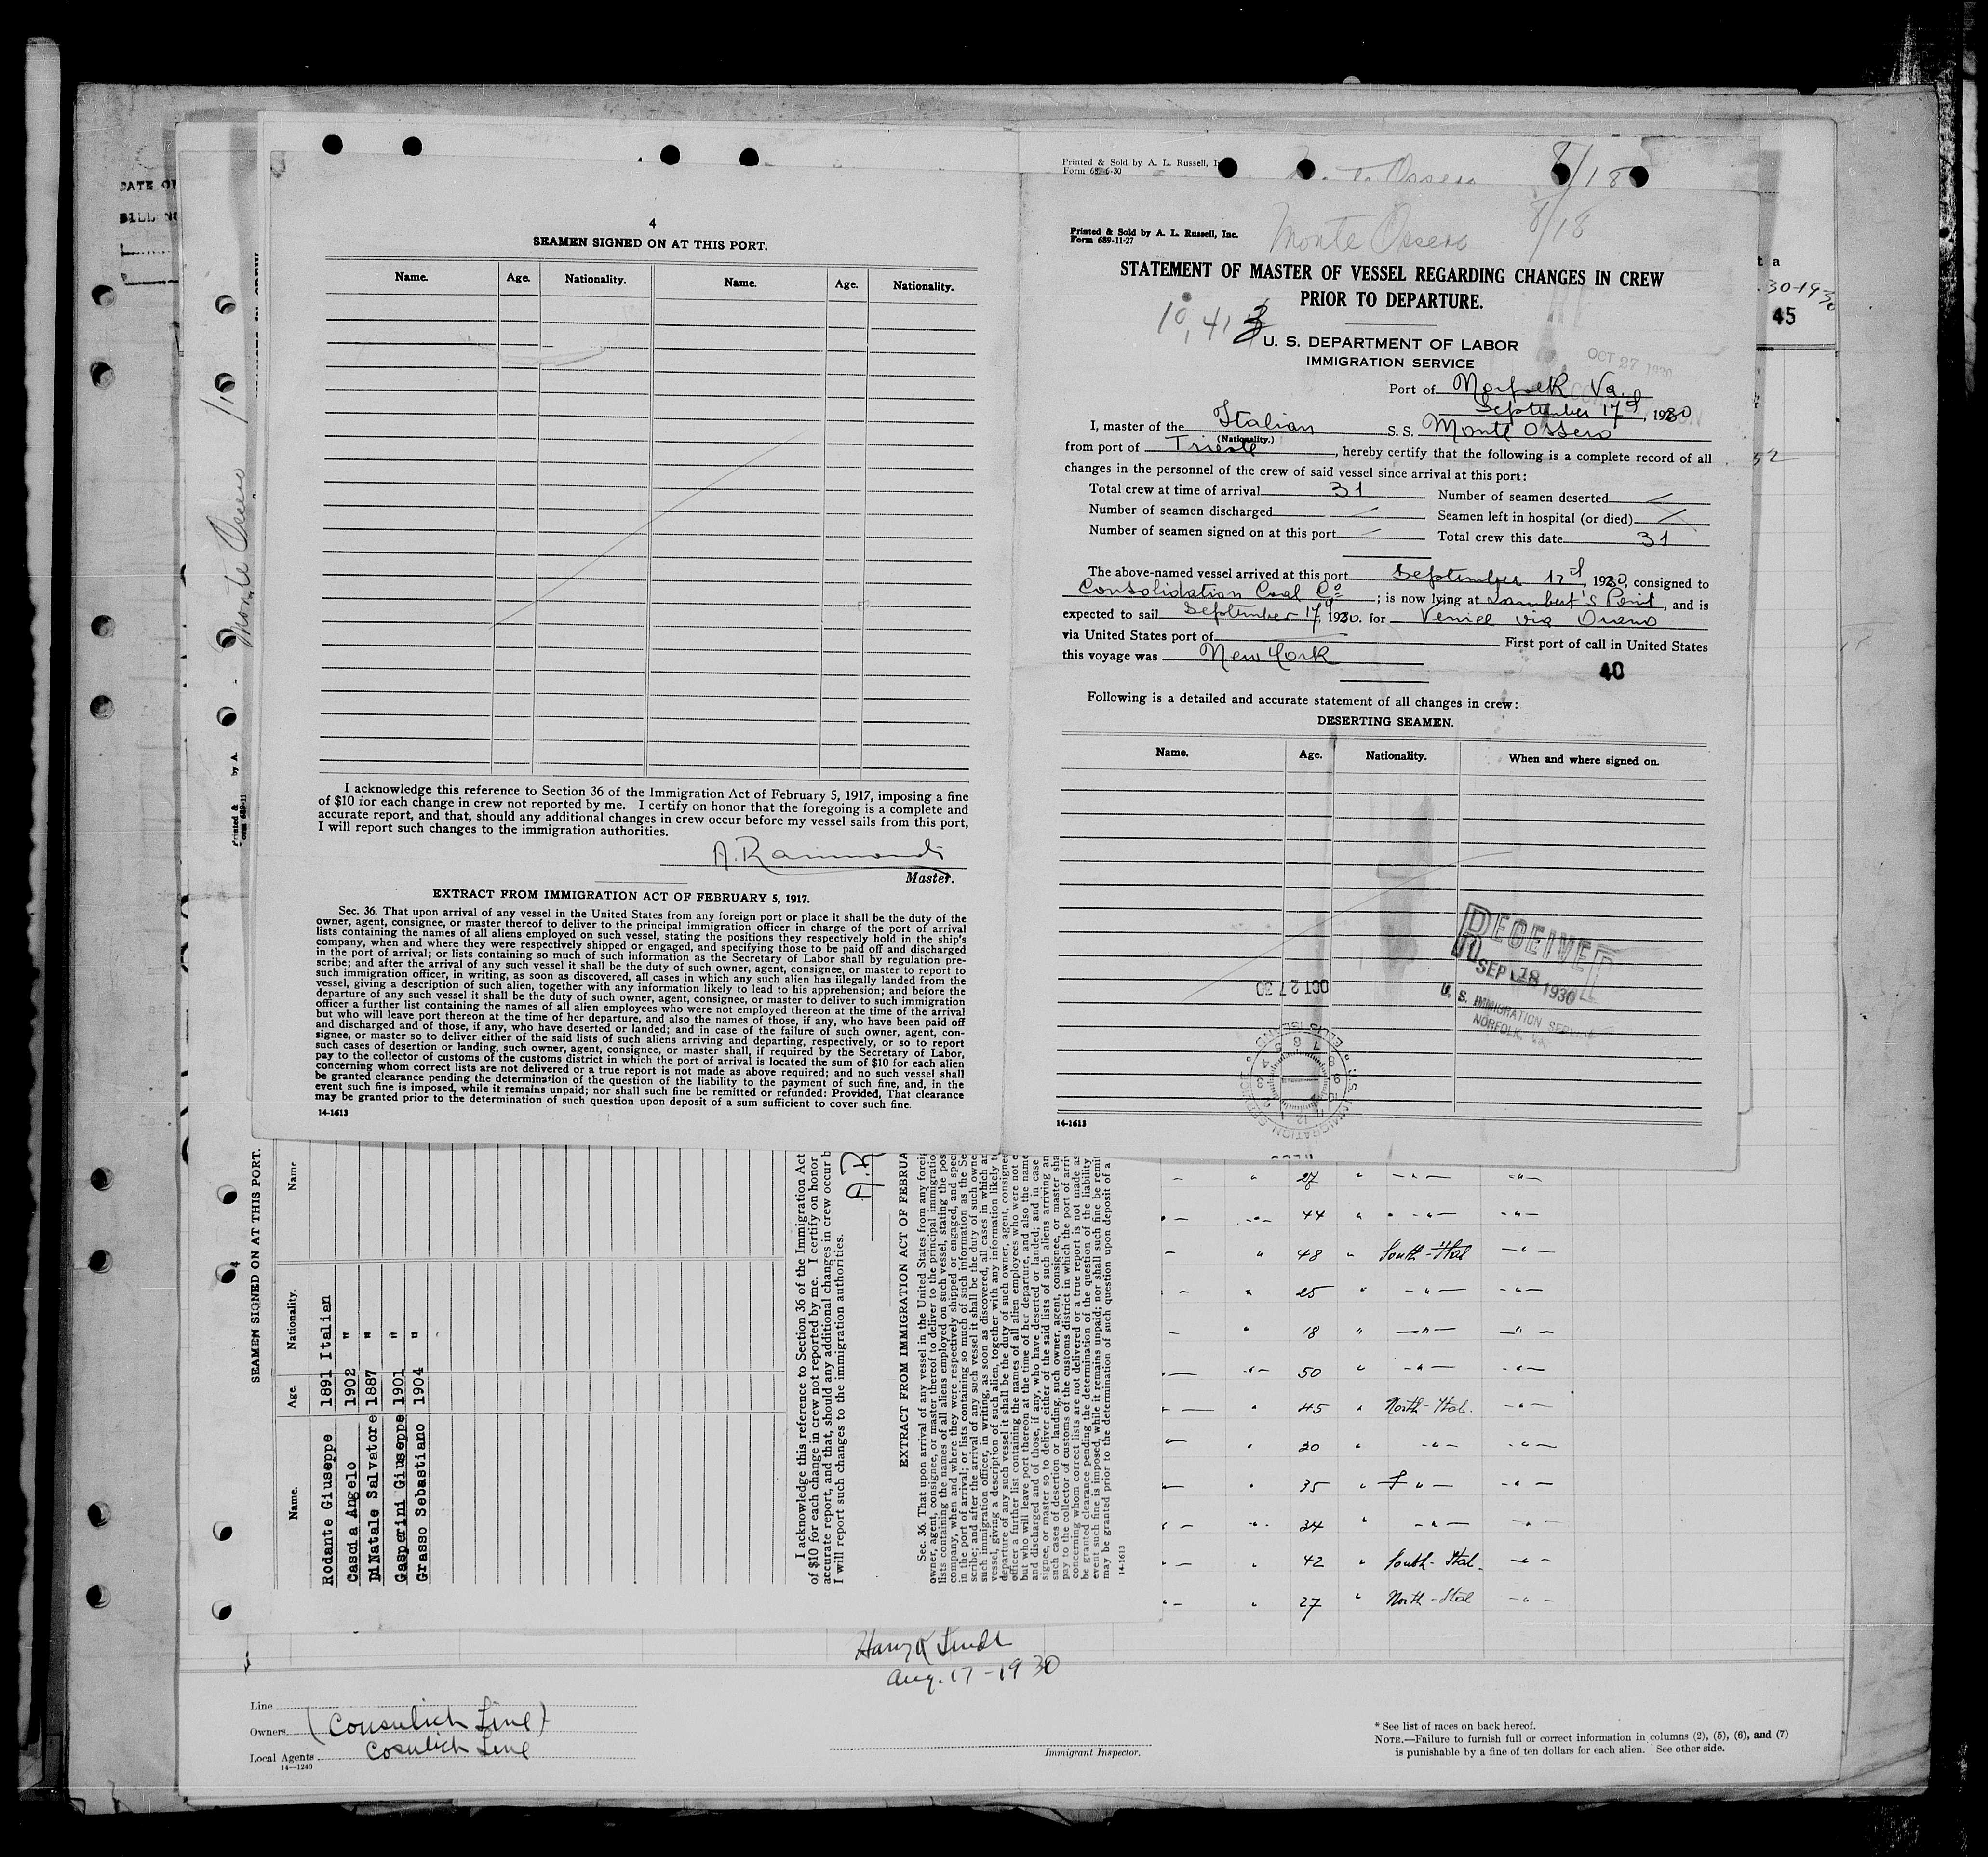 4
SEAMEN SIGNED ON AT THIS PORT.
Name. Age. Nationality. Name. Age. Nationality.
I acknowledge this reference to Section 36 of the Immigration Act of February 5, 1917, imposing a fine
of $10 for each change in crew not reported by me. I certify on honor that the foregoing is a complete and
accurate report, and that, should any additional changes in crew occur before my vessel sails from this port,
I will report such changes to the immigration authorities.
A. Raimondi
Master.
EXTRACT FROM IMMIGRATION ACT OF FEBRUARY 5, 1917.
Sec. 36. That upon arrival of any vessel in the United States from any foreign port or place it shall be the duty of the
owner, agent, consignee, or master thereof to deliver to the principal immigration officer in charge of the port of arrival
lists containing the names of all aliens employed on such vessel, stating the positions they respectively hold in the ship's
company, when and where they were respectively shipped or engaged, and specifying those to be paid off and discharged
in the port of arrival; or lists containing so much of such information as the Secretary of Labor shall by regulation pre-
scribe; and after the arrival of any such vessel it shall be the duty of such owner, agent, consignee, or master to report to
such immigration officer, in writing, as soon as discovered, all cases in which any such alien has illegally landed from the
vessel, giving a description of such alien, together with any information likely to lead to his apprehension; and before the
departure of any such vessel it shall be the duty of such owner, agent, consignee, or master to deliver to such immigration
officer a further list containing the names of all alien employees who were not employed thereon at the time of the arrival
but who will leave port thereon at the time of her departure, and also the names of those, if any, who have been paid off
and discharged and of those, if any, who have deserted or landed; and in case of the failure of such owner, agent, con-
signee, or master so to deliver either of the said lists of such aliens arriving and departing, respectively, or so to report
such cases of desertion or landing, such owner, agent, consignee, or master shall, if required by the Secretary of Labor,
pay to the collector of customs of the customs district in which the port of arrival is located the sum of $10 for each alien
concerning whom correct lists are not delivered or a true report is not made as above required; and no such vessel shall
be granted clearance pending the determination of the question of the liability to the payment of such fine, and, in the
event such fine is imposed, while it remains unpaid; nor shall such fine be remitted or refunded: Provided, That clearance
may be granted prior to the determination of such question upon deposit of a sum sufficient to cover such fine.
14-1613
Printed & Sold by A. L. Russell, I
8/18
Printed & Sold by A. L. Russell, Inc.
Form 689-11-27
Monte Ossero 8/18
STATEMENT OF MASTER OF VESSEL REGARDING CHANGES IN CREW
PRIOR TO DEPARTURE.
10,413
U. S. DEPARTMENT OF LABOR
IMMIGRATION SERVICE
OCT 27 1930
Port of Norfolk Va.
September 17th, 1930
I, master of the Italian S. S. Monte Ossero
(Nationality.)
from port of Trieste, hereby certify that the following is a complete record of all
changes in the personnel of the crew of said vessel since arrival at this port:
Total crew at time of arrival 31 Number of seamen deserted /
Number of seamen discharged / Seamen left in hospital (or died) /
Number of seamen signed on at this port / Total crew this date 31
The above-named vessel arrived at this port September 17th, 1930, consigned to
Consolidation Coal Co; is now lying at Lambert's Point, and is
expected to sail September 17, 1930. for Venice via
via United States port of First port of call in United States
this voyage was New York
40
Following is a detailed and accurate statement of all changes in crew:
DESERTING SEAMEN.
Name. Age. Nationality. When and where signed on.
RECEIVED
SEP 18 1930
U. S. IMMIGRATION SERVICE
NORFOLK, VA
OCT 27 30
14-1613
45
Monte Ossero
SEAMEN SIGNED ON AT THIS PORT.
4
Name. Age. Nationality. Name
Rodante Giuseppe 1891 Italian
Cascia Angelo 1902 "
DiNatale Salvatore 1887 "
Gasperini Giuseppe 1901 "
Grasso Sebastiano 1904 "
I acknowledge this reference to Section 36 of the Immigration Act
of $10 for each change in crew not reported by me. I certify on honor
accurate report, and that, should any additional changes in crew occur b
I will report such changes to the immigration authorities.
A. R
EXTRACT FROM IMMIGRATION ACT OF FEBRUA
Sec. 36. That upon arrival of any vessel in the United States from any foreig
14-1613
27 " — " — — " —
44 " — " — — " —
48 " South-Ital — " —
25 " — " — — " —
18 " — " — — " —
50 " — " — — " —
45 " North-Ital. — " —
20 " — " — — " —
35 " — " — — " —
34 " — " — — " —
42 " South-Ital. — " —
27 " North-Ital — " —
Aug. 17-1930
Line
Owners (Cosulich Line)
Local Agents Cosulich Line
14—1240
Immigrant Inspector.
* See list of races on back hereof.
NOTE.—Failure to furnish full or correct information in columns (2), (5), (6), and (7)
is punishable by a fine of ten dollars for each alien. See other side.